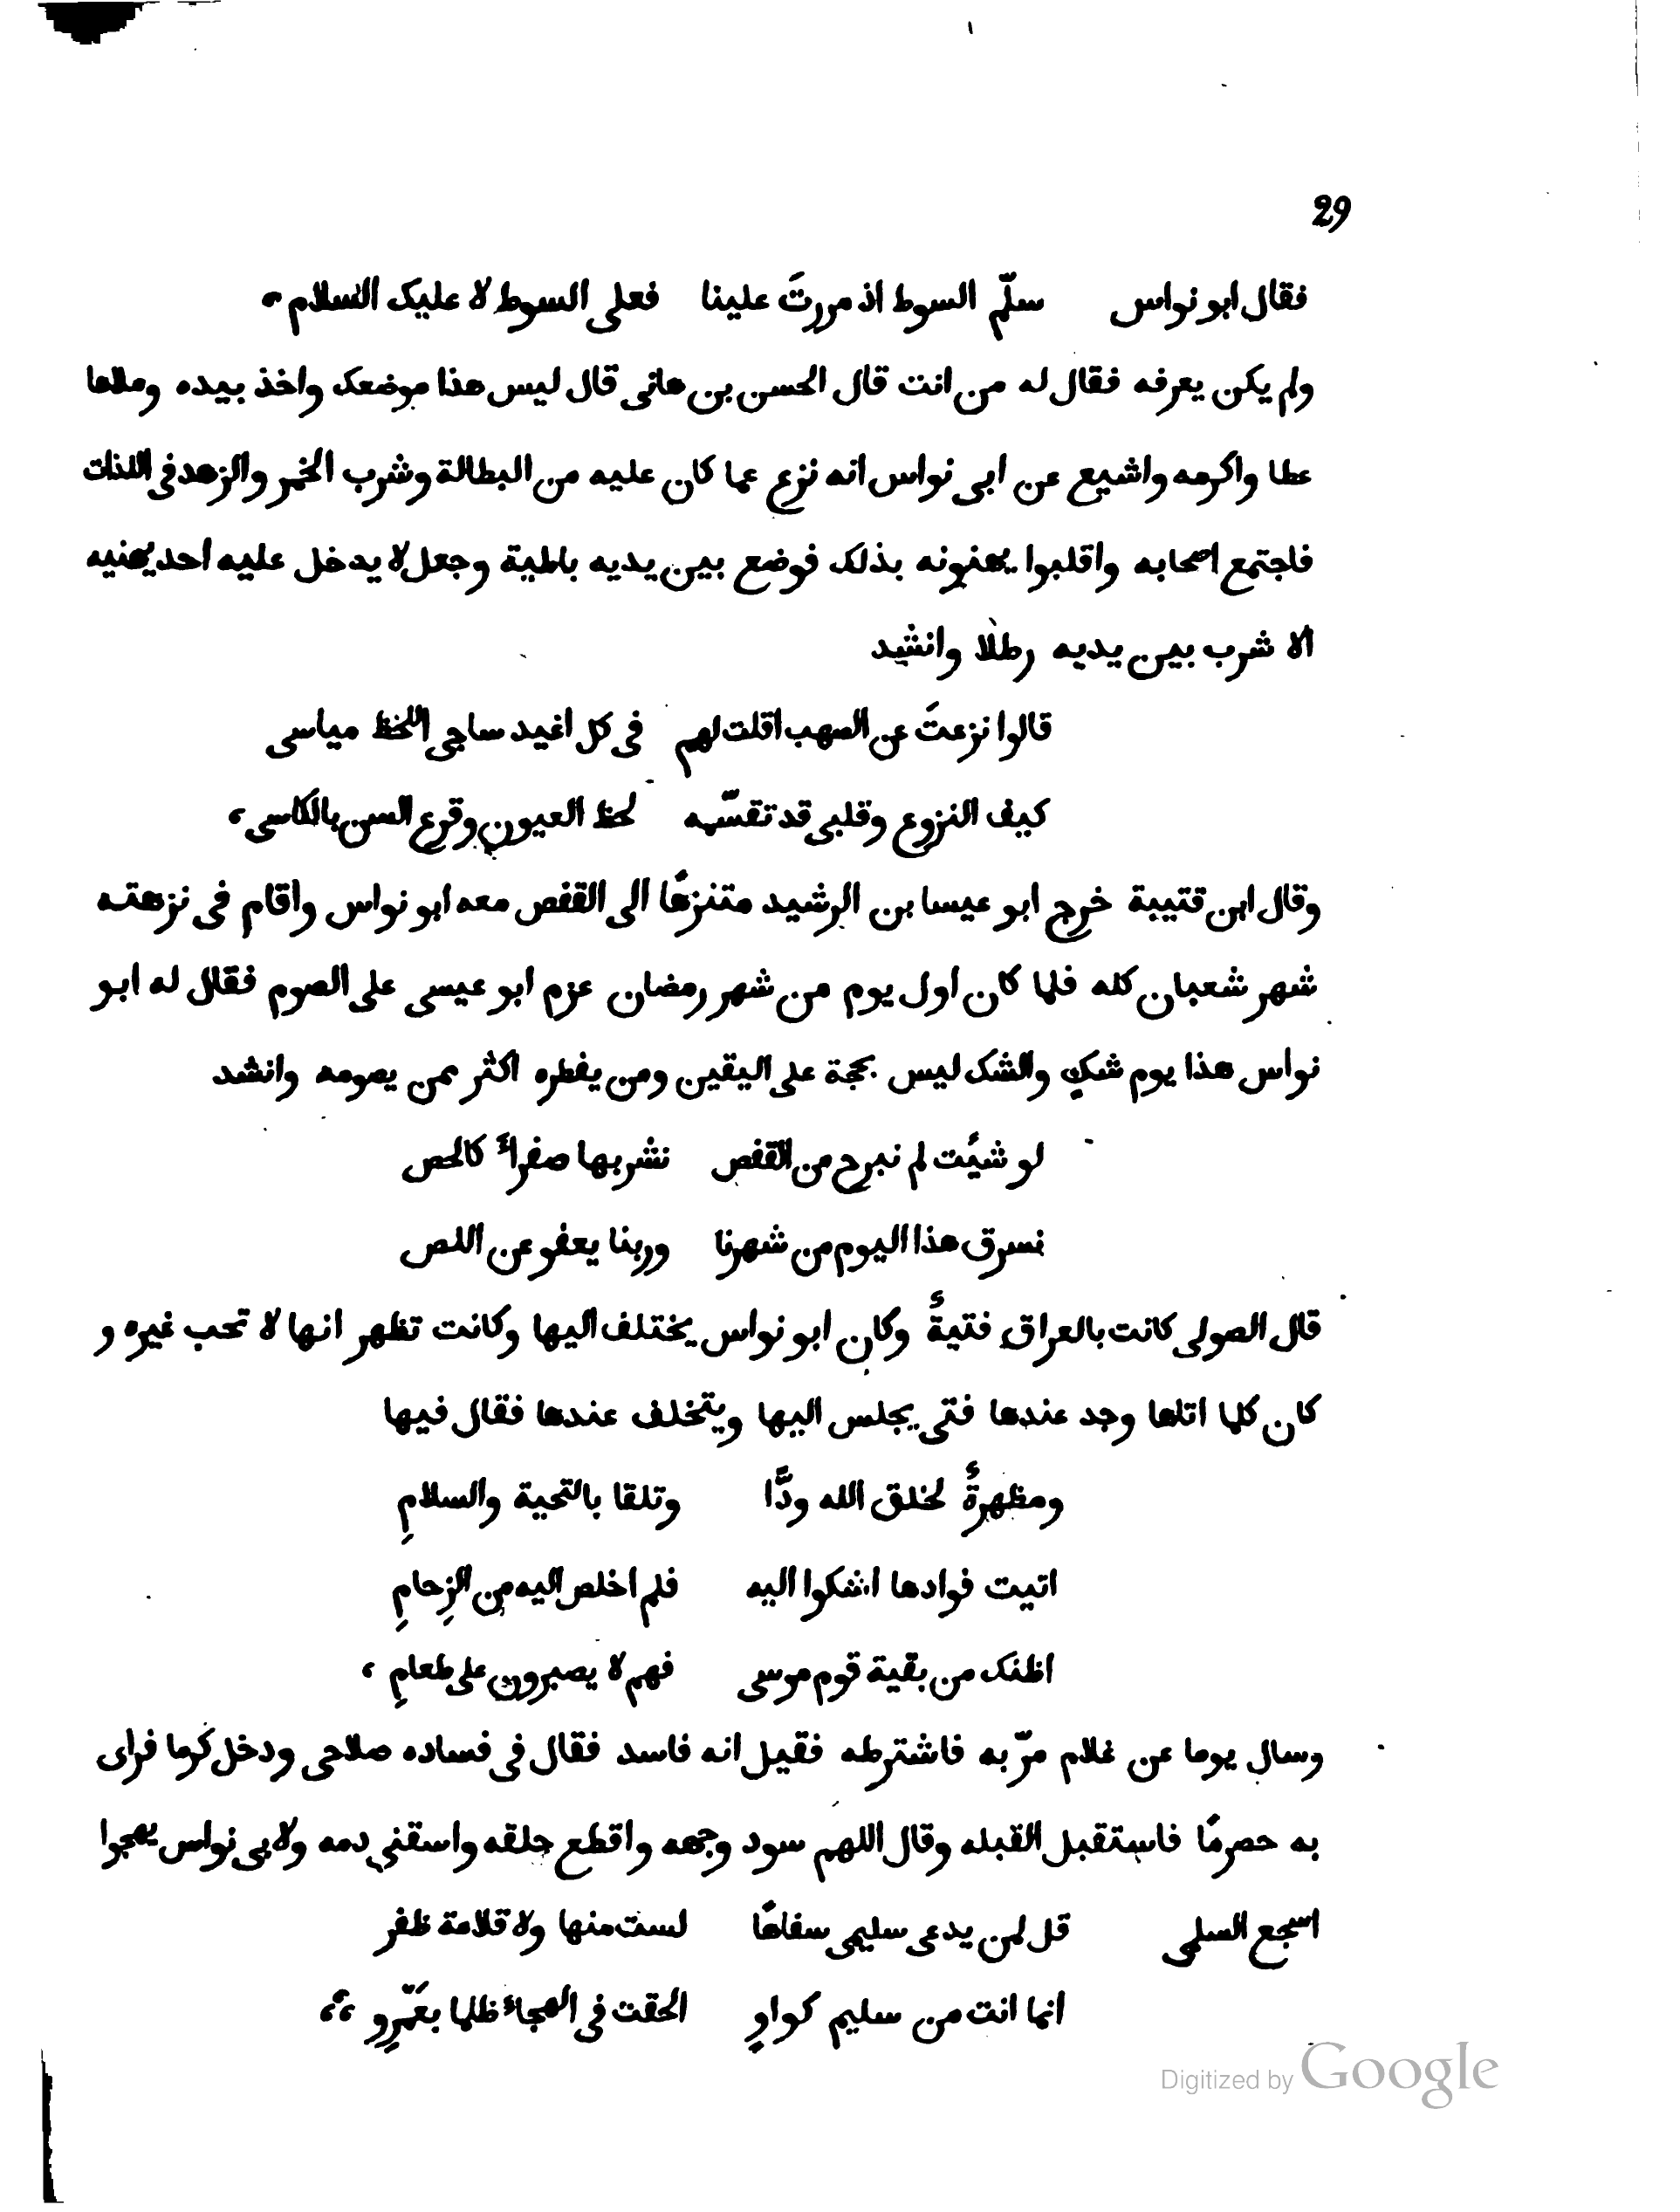 29
فقال ابو نواس سلّم السوط اذ مررتَ علينا فعلى السوط لا عليك السلام
ولم يكن يعرفه فقال له من انت قال الحسن بن هانى قال ليس هذا موضعك واخذ بيده وملاها
عطا واكرمه واشيع عن ابى نواس انه نزع عما كان عليه من البطالة وشرب الخمر والزهد فى اللذات
فاجتمع اصحابه واقلبوا يهنونه بذلك فوضع بين يديه باطية وجعل لا يدخل عليه احد يهنيه
الا شرب بين يديه رطلا وانشد
قالوا نزعتَ عن الصهب اقلت لهم فى كل اغيد ساجى اللحظ مياسى
كيف النزوع وقلبى قد تقسّمه لحظ العيون وقرع السن بالكاسى،
وقال ابن قتيبة خرج ابو عيسا بن الرشيد متنزهًا الى القفص معه ابو نواس واقام فى نزهته
شهر شعبان كله فلما كان اول يوم من شهر رمضان عزم ابو عيسى على الصوم فقال له ابو
نواس هذا يوم شكٍ والشك ليس بحجة على اليقين ومن يفطره اكثر ممن يصومه وانشد
لو شئت لم نبرح من القفص نشربها صفرأ كالحص
نسرق هذا اليوم من شهرنا وربنا يعفو عن اللص
قال الصولى كانت بالعراق فتيةٌ وكان ابو نواس يختلف اليها وكانت تظهر انها لا تحب غيره و
كان كلما اتاها وجد عندها فتى يجلس اليها ويتخلف عندها فقال فيها
ومظهرةٌ لخلق الله ودًّا وتلقا بالتحية والسلامِ
اتيت فوادها اشكوا اليه فلم اخلص اليه من الزِحامِ
اظنك من بقية قوم موسى فهم لا يصبرون على طعامِ،
وسال يوما عن غلام مرّ به فاشترطه فقيل انه فاسد فقال فى فساده صلاحى ودخل كرما فراى
به حصرمًا فاستقبل القبله وقال اللهم سود وجهه واقطع حلقه واسقنى دمه ولابى نواس يهجوا
اسجع السلمى قل لمن يدعى سليمى سفاهًا لست منها ولا قلامة ظفر
انما انت من سليم كواوٍ الحقت فى الهجأ ظلما بعَمْرٍو
Digitized by Google